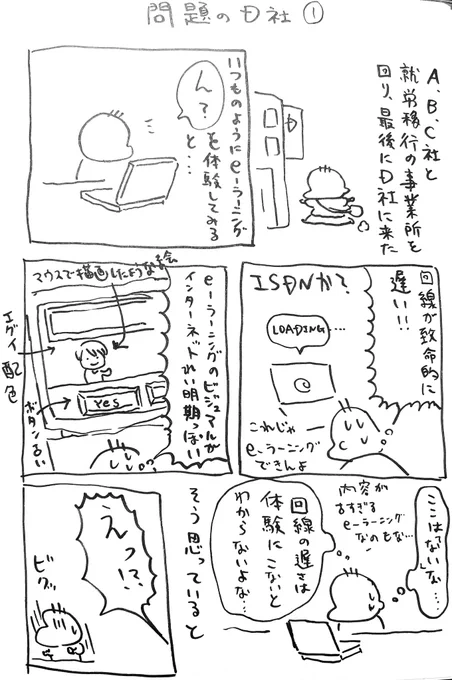 問題のD社①
A、B、C社と
就労移行の事業所を
回り、最後にD社に来た
D
いつものようにe-ラーニング
を体験してみる
と…
ん?
回線が致命的に
遅い!!
ISDNか?
LOADING…
これじゃ
e-ラーニング
できんよ
e-ラーニングのビジュアルが
インターネット黎明期っぽい
マウスで描画したような絵
エグイ配色
ボタンるい
yes
ここはナイな…
内容が
古すぎる
e-ラーニング
なのもな…
回線の遅さは
体験にこないと
わからないよな…
そう思っていると
えっ!?
ビクッ